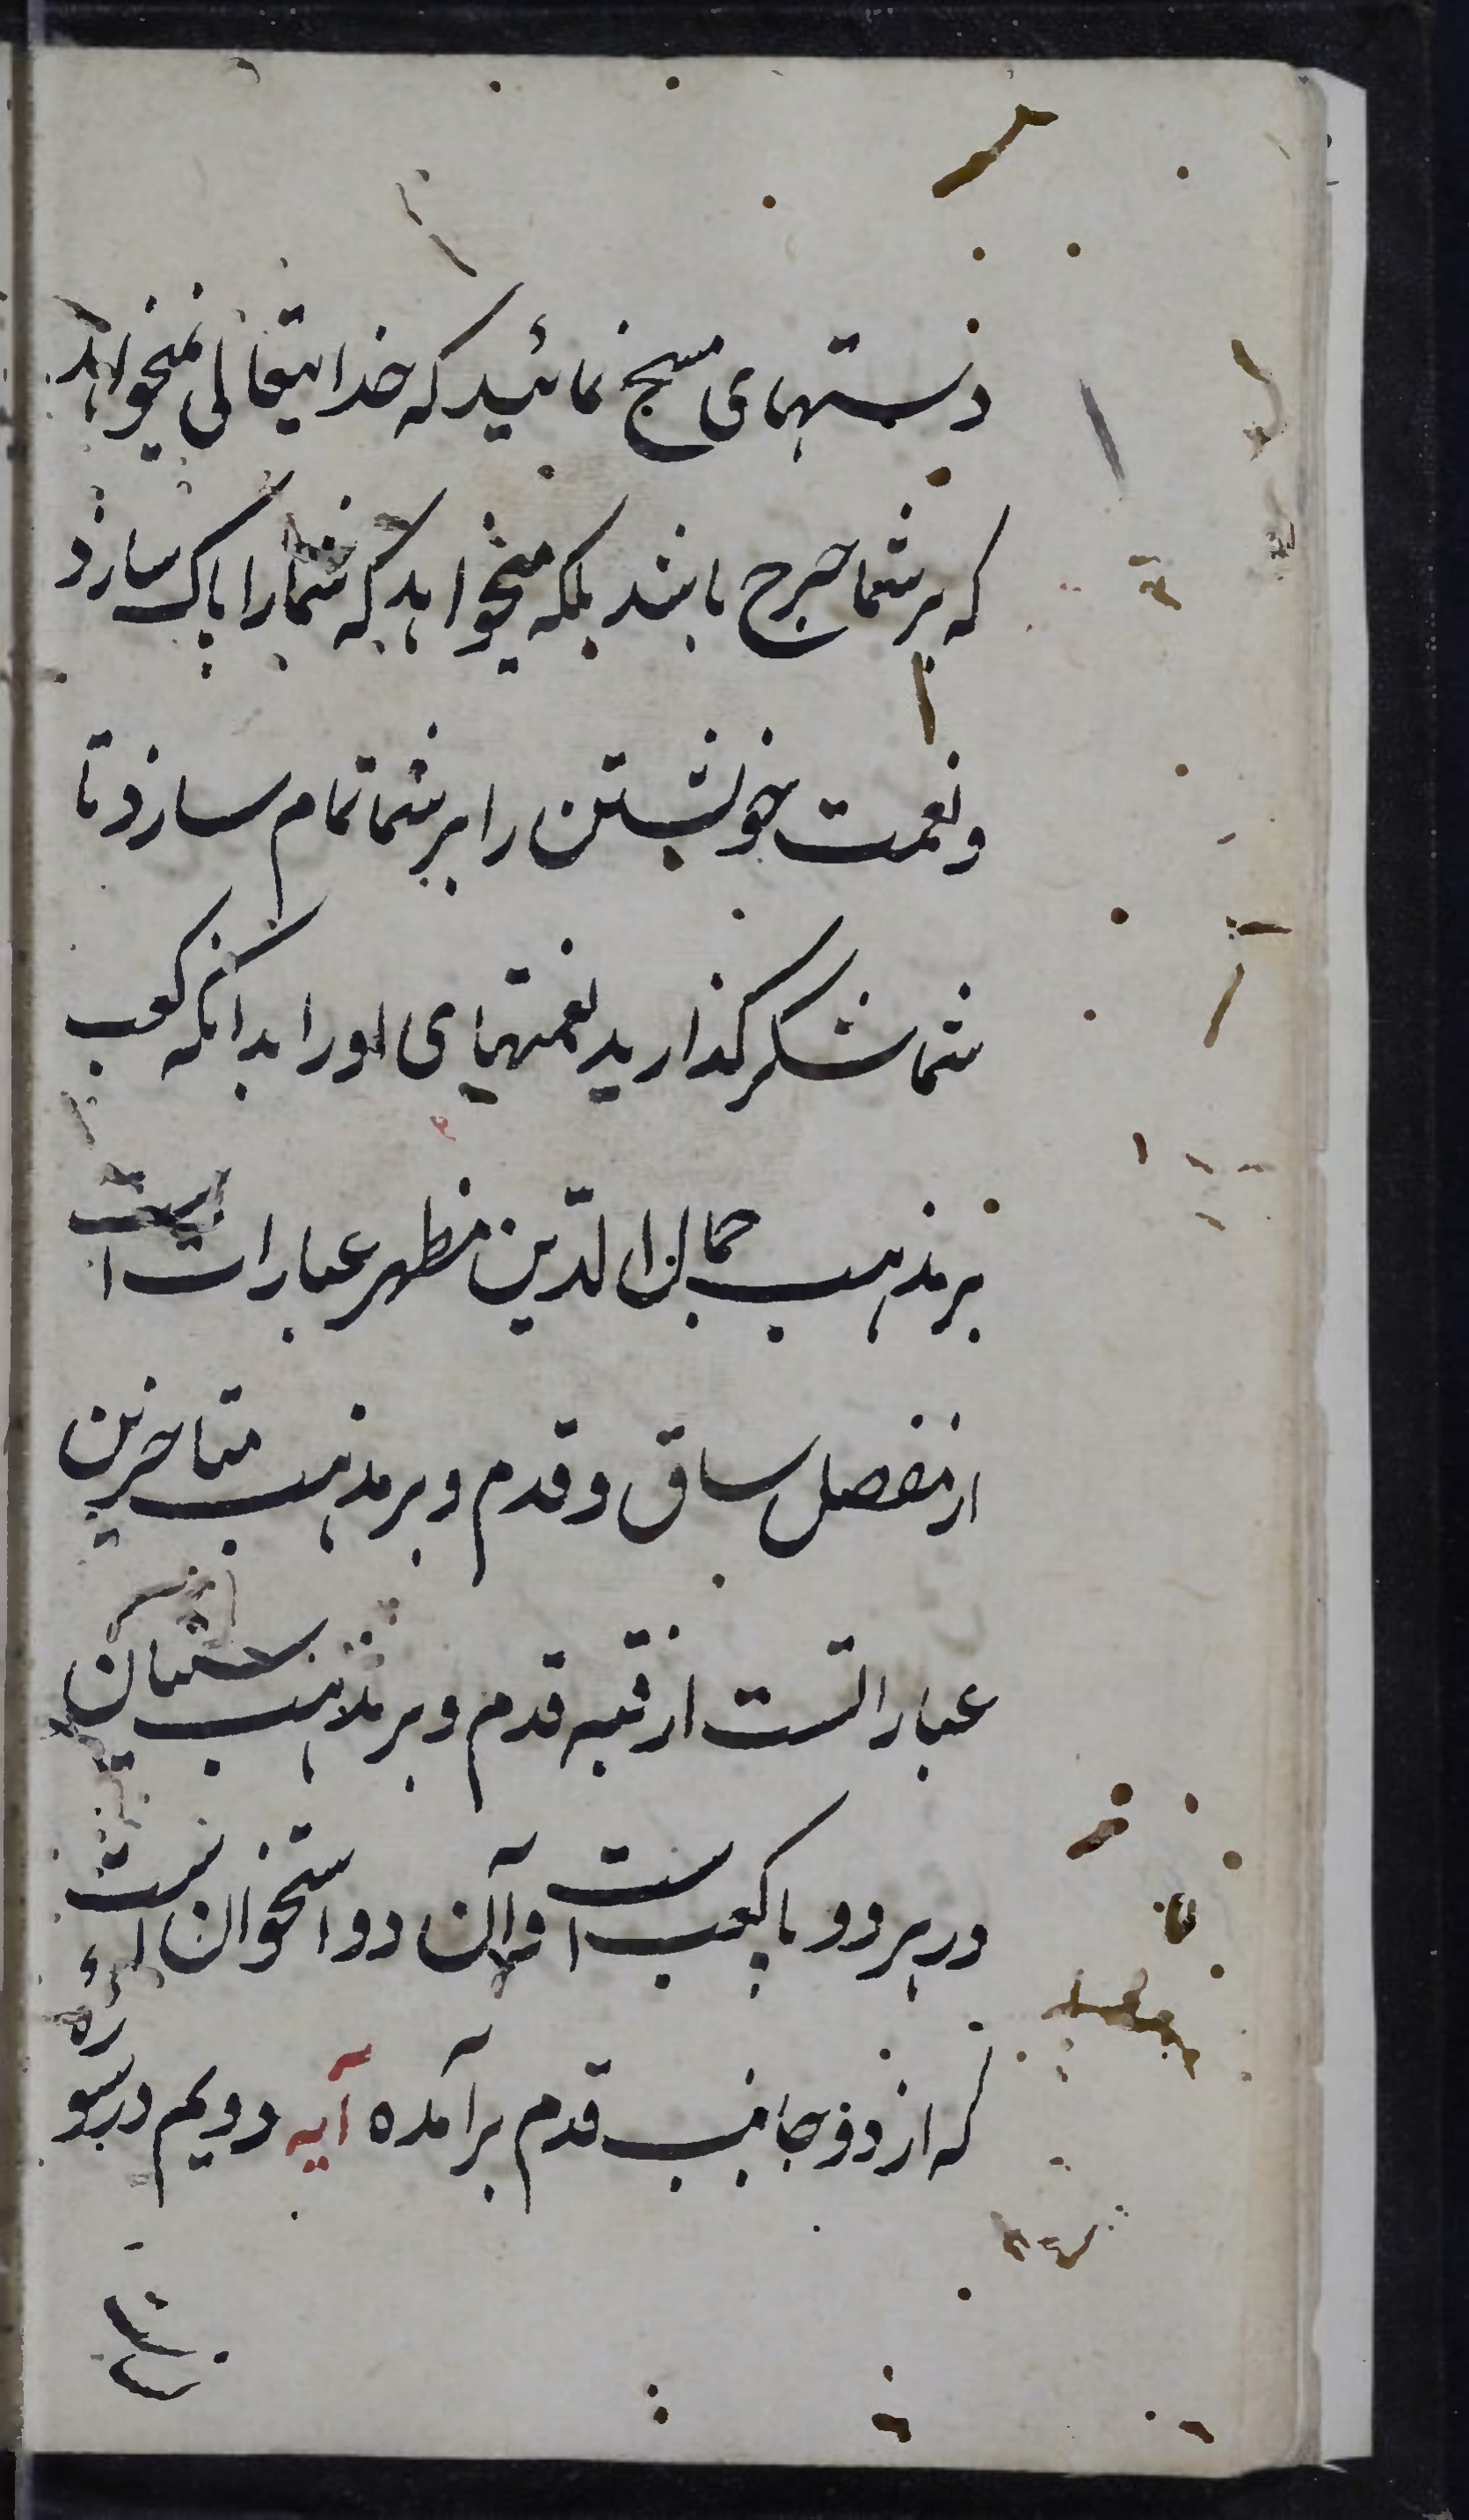 دستهای مسح نمائید که خدایتعالی نمیخواهد
که بر شما حرج باشد بلکه میخواهد که شما را پاک سازد
و نعمت خویشتن را بر شما تمام سازد تا
شما شکر گذارید نعمتهای او را بدانکه کعب
بر مذهب جمال الدین مطهر عبارات است
از مفصل ساق و قدم و بر مذهب متاخرین
عبارتست از قبه قدم و بر مذهب سنیان
در هر دو پا کعب است و آن دو استخوان است
که از دو جانب قدم برآمده آیه دویم در سوره